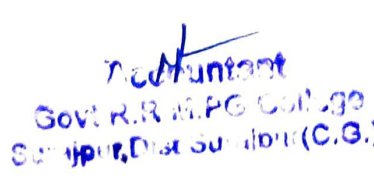 Accountant
Govt R.R.M.PG College
Surajpur,Dist Surajpur(C.G.)